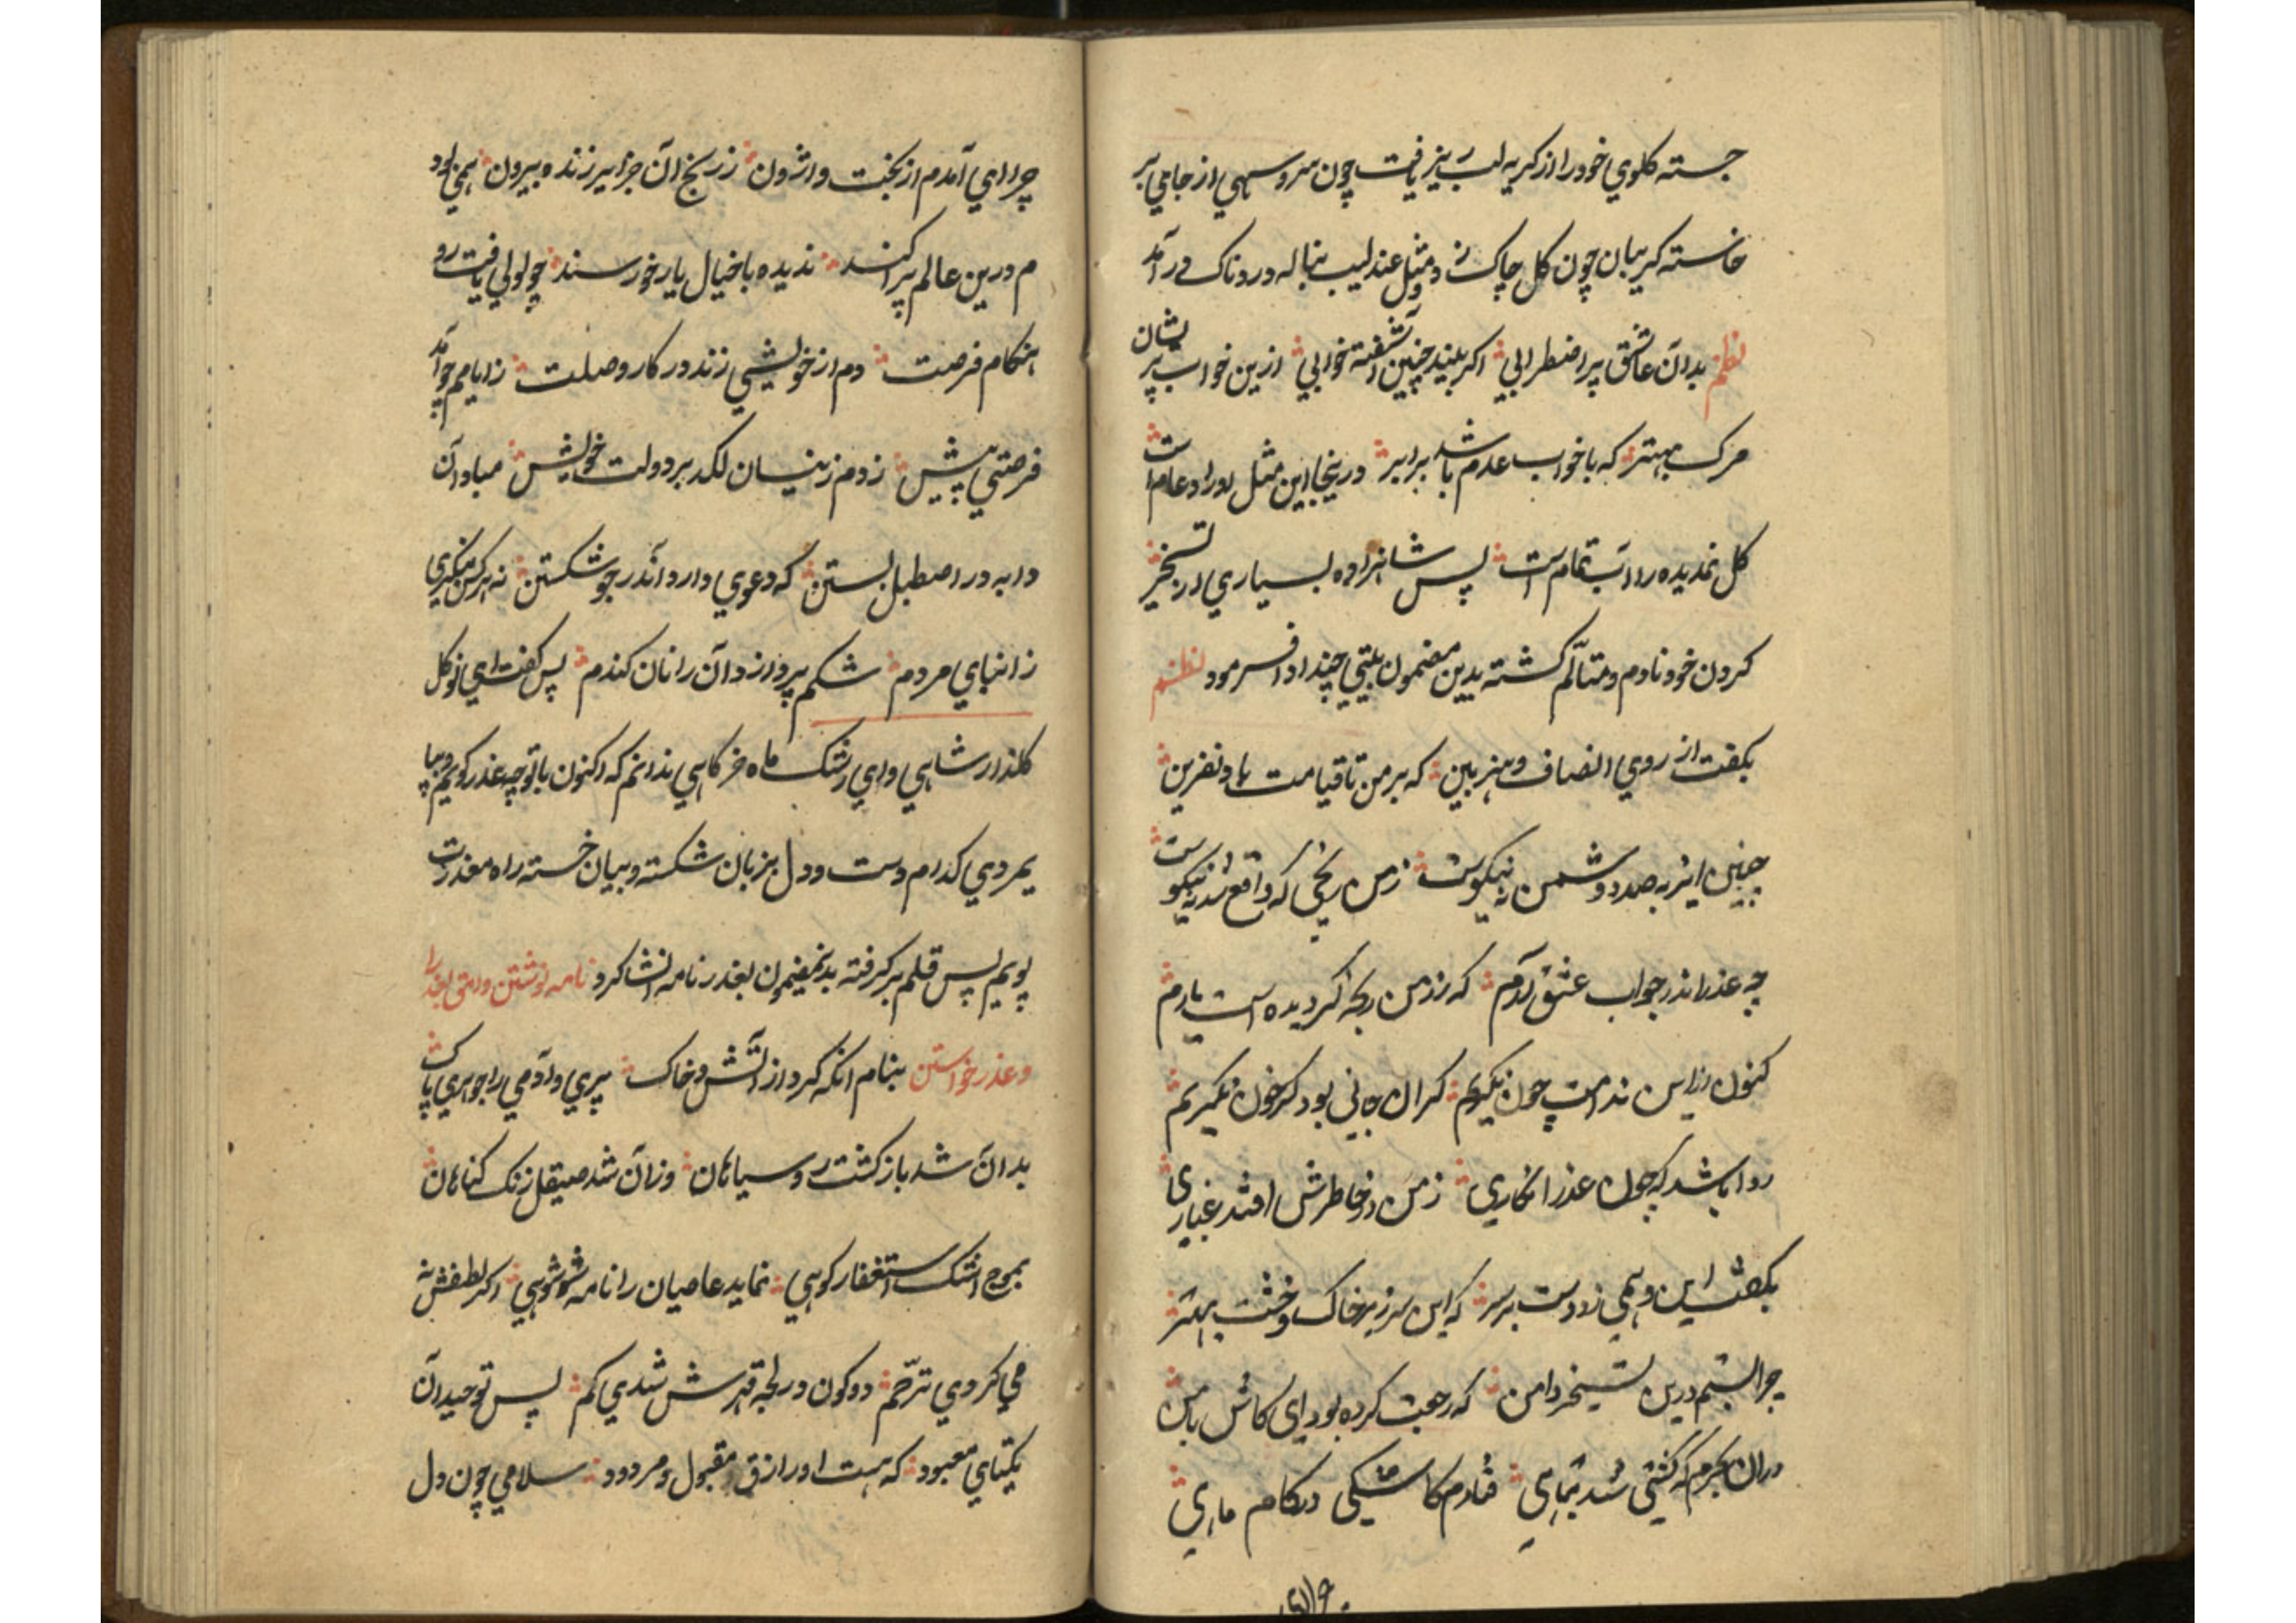 جسته کلوي خود را از کریه لب ریز یافت چون سرو سهي از جاي بر
خاسته کریبان چون کل چاک زد و مثل عندلیب بناله دردناک در آمد
نظم بدان عاشق پر اضطرابي اکر بیند چنین آشفته خوابي ازین خواب پریشان
مرک بهتر که با خواب عدم باشد برابر درینجا این مثل بر عام است
کل ندیده را آب تمام است پس شاهزاده بسیاري از تسخیر
کردن خود نادم و متألم کشته بدین مضمون بیتي چند ادا فرمود نظم
بکفت از روي انصاف و هنر بین که بر من تا قیامت باد نفرین
چنین از به صد دشمن نه نیکوست ز من رنجي که واقع شد نه نیکوست
چه عذر اندر جواب عشق آرم که از من رنجه کردیده است یارم
کنون زین ندامت چون نکویم کران جاني بود کر خون نکریم
روا باشد که چون عذرا نکاري ز من در خاطرش افتد غباري
بکفت این و همي زد دست بر سر که این سر زیر خاک و خشت بهتر
چرا بستم درین تسخیر دامن که رجعت کرده بود اي کاش با من
دران بحرم که کشتي شد تباهي فتادم کاشکي در کام ماهي
چرا اي آمدم از بخت واژون ز رنج آن جزایر زنده بیرون همي بود
م درین عالم پراکنده ندیده با خیال یار خورسند چو لولي یافت رو
هنکام فرصت دم از خویشي زند در کار وصلت ز ایامم چو آمد
فرصتي پیش زدم زینسان لکد بر دولت خویش مباد آن
دابه در اصطبل بستن که دعوي دارد اندر جو شکستن نه هرکس
ز ابناي مردم شکم پردازد آن را نان کندم پس کفت اي نو کل
کلذار شاهي و اي رشک ماه خرکاهي ندانم که اکنون با تو چه عذر کویم و بپا
یمردي کدام دست و دل بزبان شکسته و بیان خسته راه معذرت
پویم پس قلم بر کرفته بدینمضمون بعذرا نامه انشا کرد نامه نوشتن وامق بعذرا
و عذر خواستن بنام انکه کرد از آتش و خاک پري و آدمي را جوهري پاک
بدان شد بازکشت رو سیاهان وزان شد صیقل زنک کناهان
بموج اشک استغفار کوهي نماید عاصیان را نامه شوهي اکر لطفش نه
مي کردي ترحم دو کون در لجه قهرش شدي کم پس توحید آن
یکتاي معبود که هست او رازق مقبول و مردود سلامي چون دل